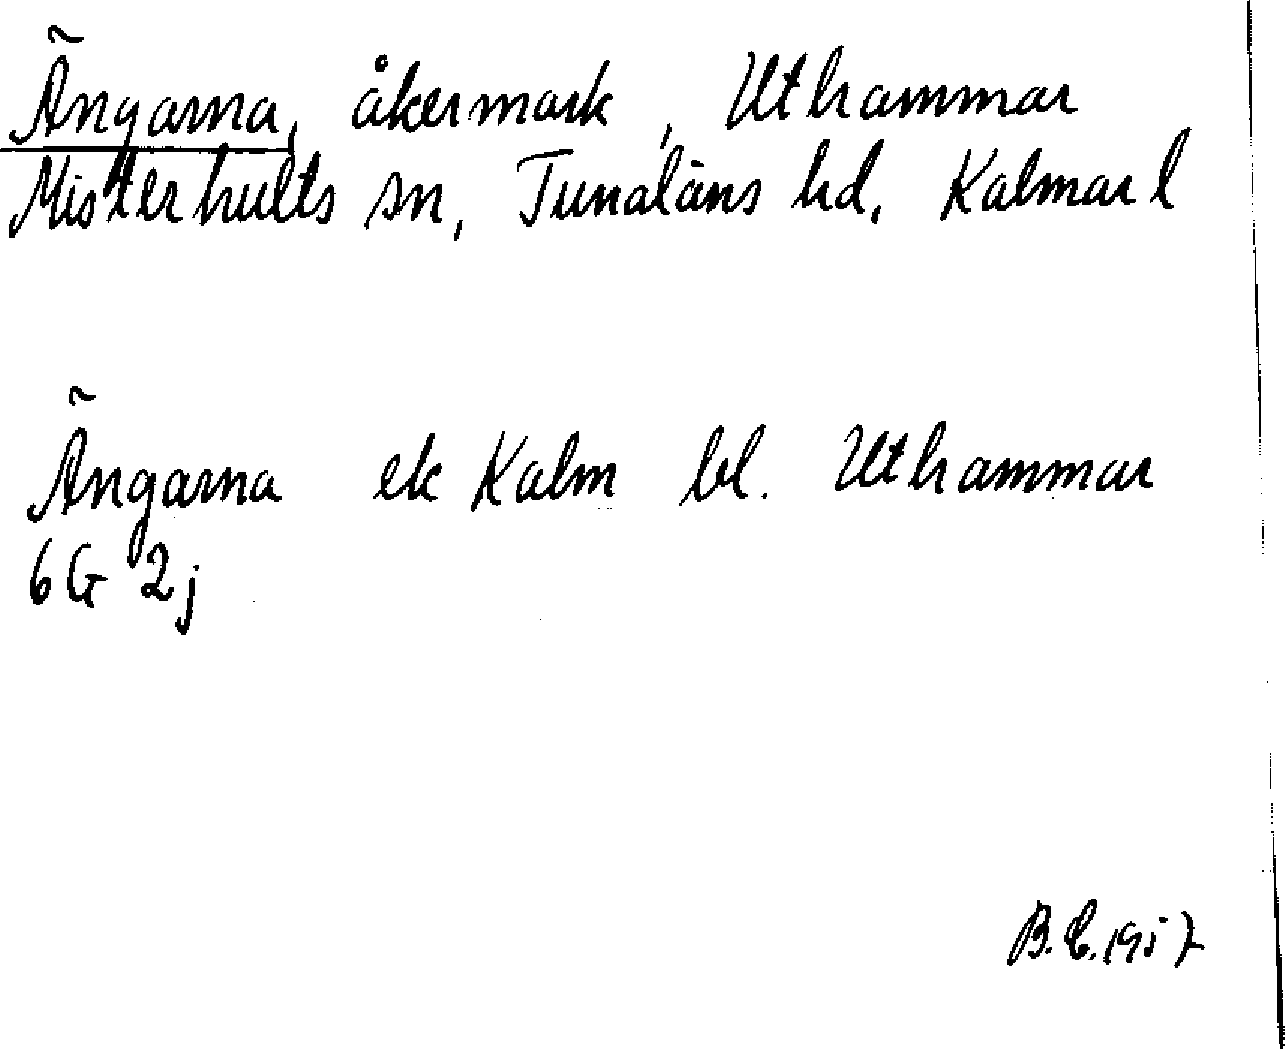 Ängarna, åkermark, Uthammar
Misterhults sn, Tunaläns hd, Kalmar l
Ängarna ek Kalm bl. Uthammar
6 G 2j
B.E. 1957